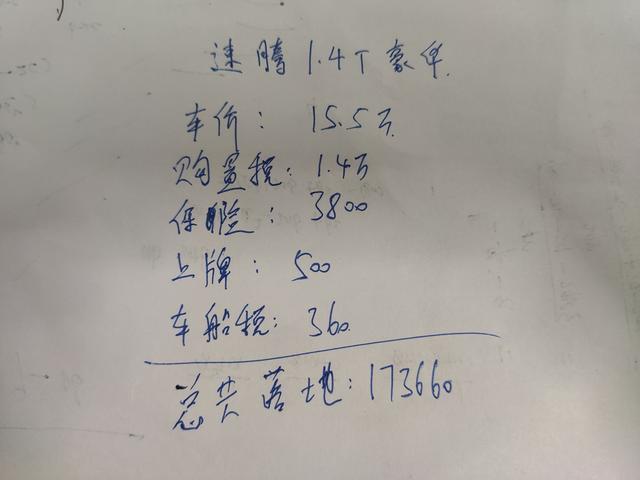 速腾 1.4T豪华
车价：15.5万
购置税：1.4万
保险：3800
上牌：500
车船税：360
总共落地：173660